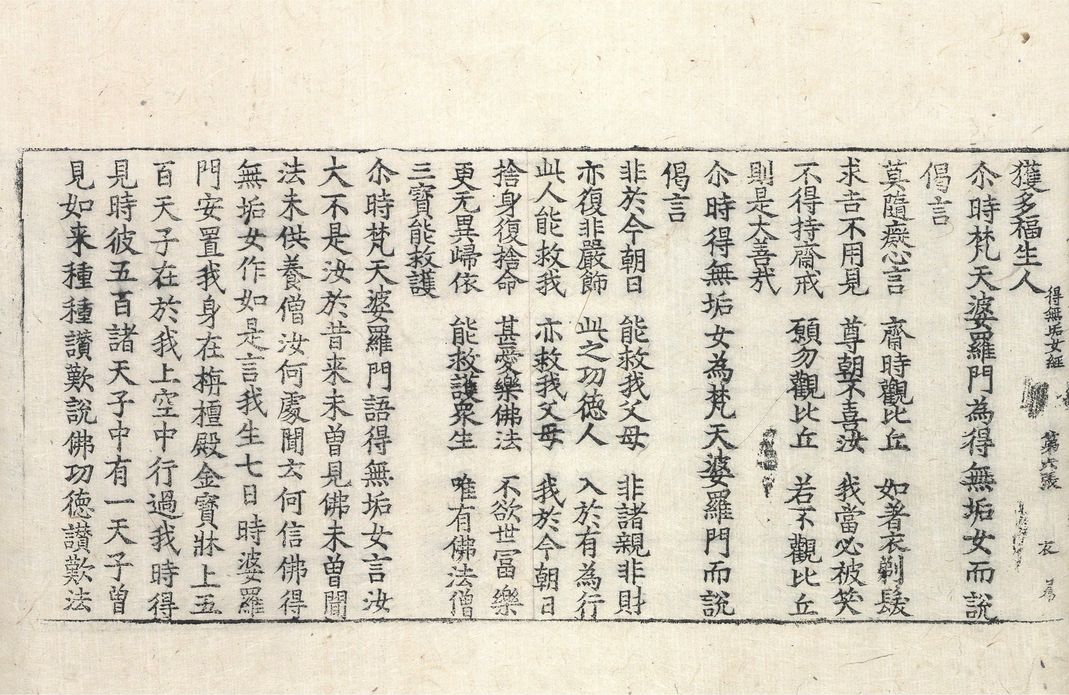 獲多福生人
得無垢女經 第六張 衣
尒時梵天婆羅門為得無垢女而說
偈言
莫隨癡心言 齋時觀比丘 如著衣剃髮
求吉不用見 尊朝不喜汝 我當必被笑
不得持齋戒 願勿觀比丘 若不觀比丘
則是大善哉
尒時得無垢女為梵天婆羅門而說
偈言
非於今朝日 能救我父母 非諸親非財
亦復非嚴飾 此之功德人 入於有為行
此人能救我 亦救我父母 我於今朝日
捨身復捨命 甚愛樂佛法 不欲世冨樂
更无異歸依 能救護眾生 唯有佛法僧
三寶能救護
尒時梵天婆羅門語得無垢女言汝
大不是汝於昔来未曾見佛未曾聞
法未供養僧汝何處聞云何信佛得
無垢女作如是言我生七日時婆羅
門安置我身在栴檀殿金寶牀上五
百天子在於我上空中行過我時得
見時彼五百諸天子中有一天子曾
見如来種種讃歎說佛功德讃歎法